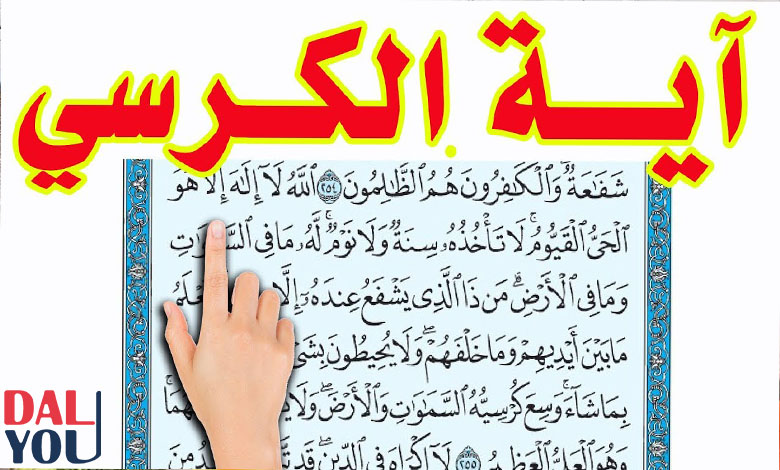 آية الكرسي
شَفَٰعَةٌۗ وَٱلْكَٰفِرُونَ هُمُ ٱلظَّٰلِمُونَ ٢٥٤ ٱللَّهُ لَآ إِلَٰهَ إِلَّا هُوَ
ٱلْحَىُّ ٱلْقَيُّومُۚ لَا تَأْخُذُهُۥ سِنَةٌ وَلَا نَوْمٌۚ لَّهُۥ مَا فِى ٱلسَّمَٰوَٰتِ
وَمَا فِى ٱلْأَرْضِۗ مَن ذَا ٱلَّذِى يَشْفَعُ عِندَهُۥٓ إِلَّا
مَا بَيْنَ أَيْدِيهِمْ وَمَا خَلْفَهُمْۖ وَلَا يُحِيطُونَ
بِمَا شَآءَۚ وَسِعَ كُرْسِيُّهُ ٱلسَّمَٰوَٰتِ وَٱلْأَرْضَۖ
وَهُوَ ٱلْعَلِىُّ ٱلْعَظِيمُ ٢٥٥ لَآ إِكْرَاهَ فِى ٱلدِّينِۖ قَد
DAL
YOU